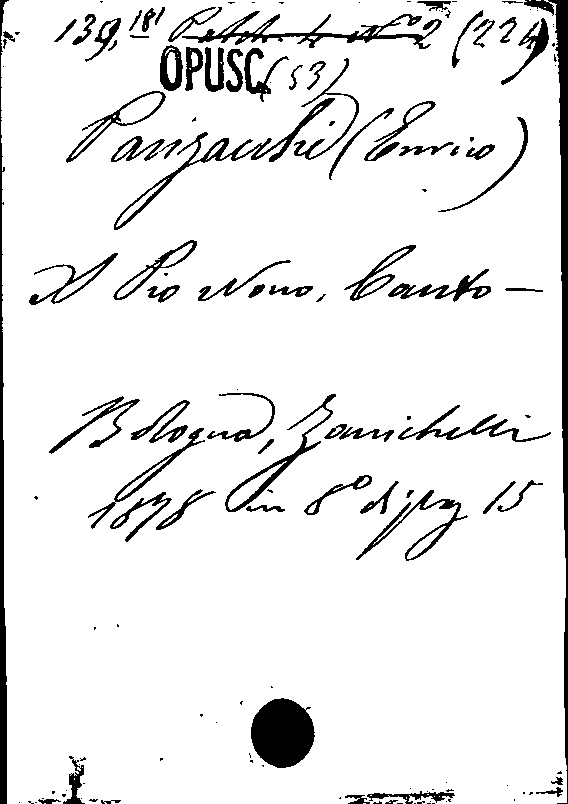 139,181 Palch. 4 N° 2 (224)
OPUSC. (53)
Panzacchi (Enrico)
A Pio Nono, Canto —
Bologna, Zanichelli
1878 in 8° di pag 15